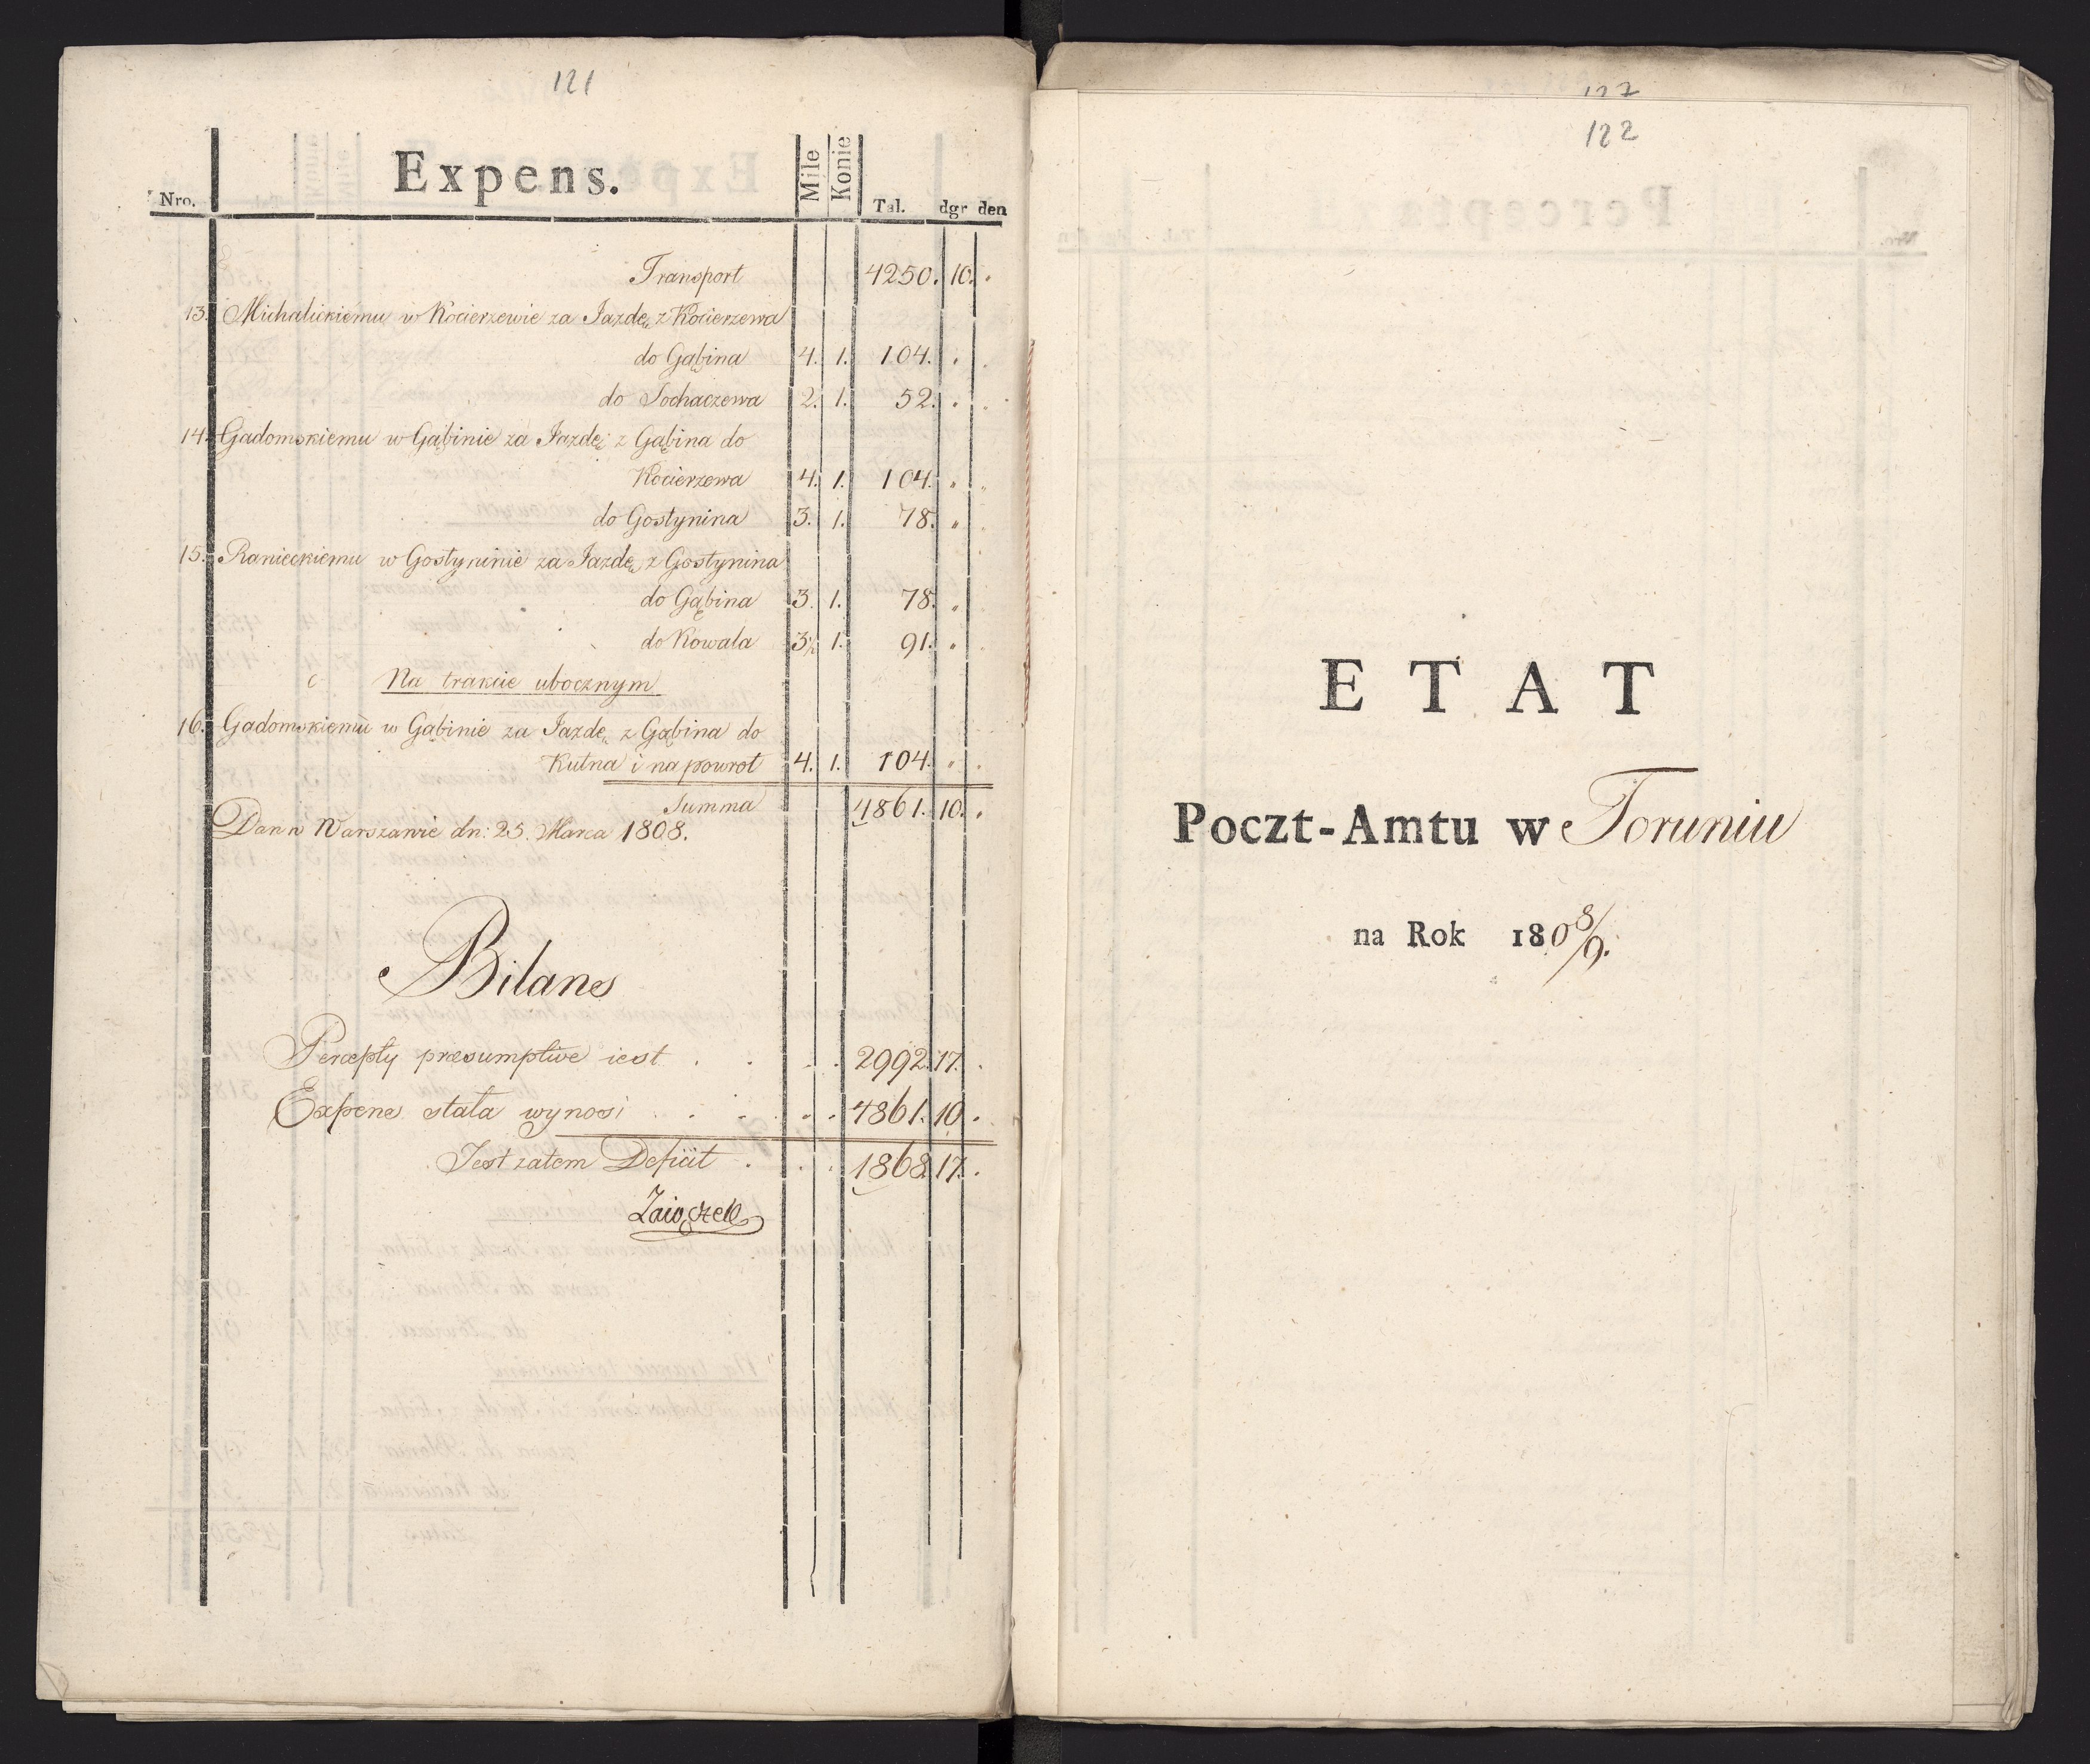 121
Nro. Expens. Mile Konie Tal. dgr den
Transport 4250. 10. .
13. Michalickiemu w Kocierzewie za Jazdę z Kocierzewa
do Gąbina 4. 1. 104. . .
do Sochaczewa 2. 1. 52. . .
14. Gadomskiemu w Gąbinie za Jazdę z Gąbina do
Kocierzewa 4. 1. 104. " "
do Gostynina 3. 1. 78. "
15. Ranieckiemu w Gostyninie za Jazdę z Gostynina
do Gąbina 3. 1. 78. "
do Kowala 3½ 1. 91. "
c Na trakcie ubocznym
16. Gadomskiemu w Gąbinie za Jazdę z Gąbina do
Kutna i na powrot 4. 1. 104. " .
Summa 4861. 10. .
Dan w Warszawie dn: 25. Marca 1808.
Bilans
Percepty præsumptive iest . . . . 2992. 17. .
Expens stała wynosi . . . . 4861. 10. .
Jest zatem Deficit . . . 1868. 17. .
Zaiączek
122
122
ETAT
Poczt-Amtu w Toruniu
na Rok 1808/9.